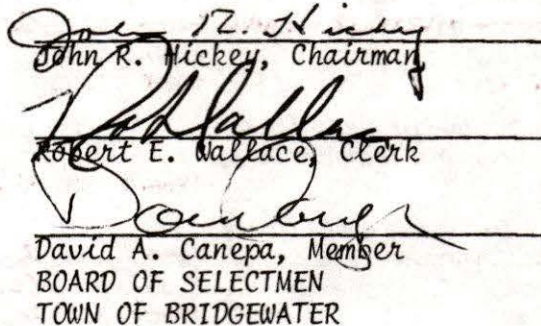 John R. Hickey
John R. Hickey, Chairman
Robert E. Wallace, Clerk
David A. Canepa, Member
BOARD OF SELECTMEN
TOWN OF BRIDGEWATER